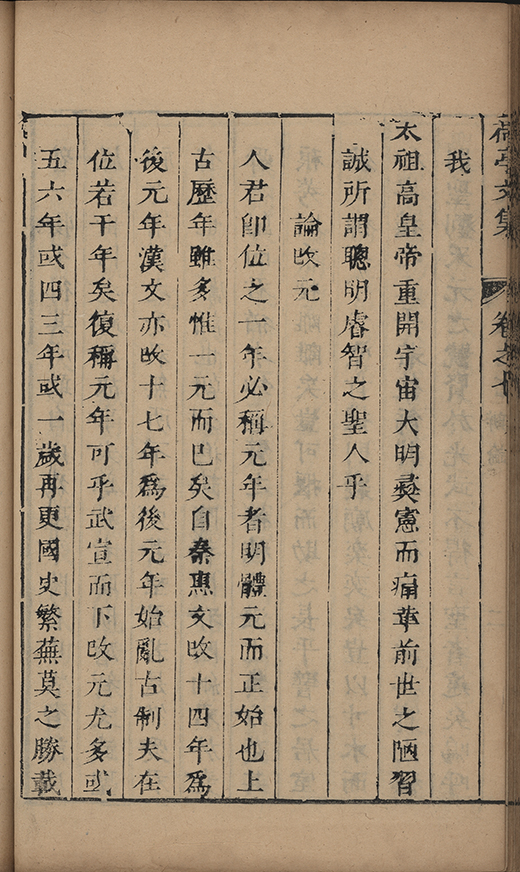 文集 卷之七
我
太祖高皇帝重開宇宙大明彛憲而痛革前世之陋習
誠所謂聰明睿智之聖人乎
論改元
人君卽位之一年必稱元年者明體元而正始也上
古歷年雖多惟一元而已矣自秦惠文改十四年爲
後元年漢文亦改十七年爲後元年始亂古制夫在
位若干年矣復稱元年可乎武宣而下改元尤多或
五六年或四三年或一歲再更國史繁蕪莫之勝載